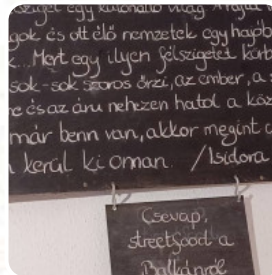 egy különálló világ
gok és ott élő nemzetek egy hajób
k... Mert egy ilyen félszigetet körb
sok-sok szoros őrzi, az ember, a
ne és az áru nehezen hatol a köz
már benn van, akkor megint c
kerül ki onnan. /Isidora
Csevap,
streetfood a
Balkánról